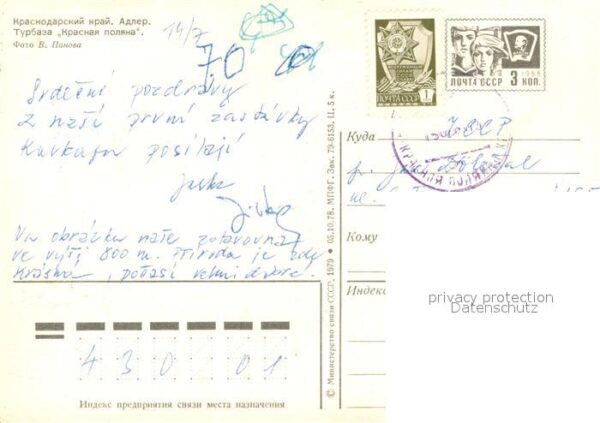 Краснодарский край. Адлер.
Турбаза „Красная поляна".
Фото В. Панова
14/7
70
Srdečné pozdravy
z naší první zastávky
Kavkazu posílají
Na obrázku naše zotavovna
ve výši 800 m. Příroda je zde
krásná, počasí velmi dobré.
1
ПОЧТА СССР
ПОЧТА СССР 3 КОП.
1966
КРАСНАЯ ПОЛЯНА
Куда ČSSR
Кому
Индекс
© Министерство связи СССР, 1979 · 05.10.78. МПФГ. Зак. 79-6153. Ц. 5 к.
privacy protection
Datenschutz
430 01
Индекс предприятия связи места назначения